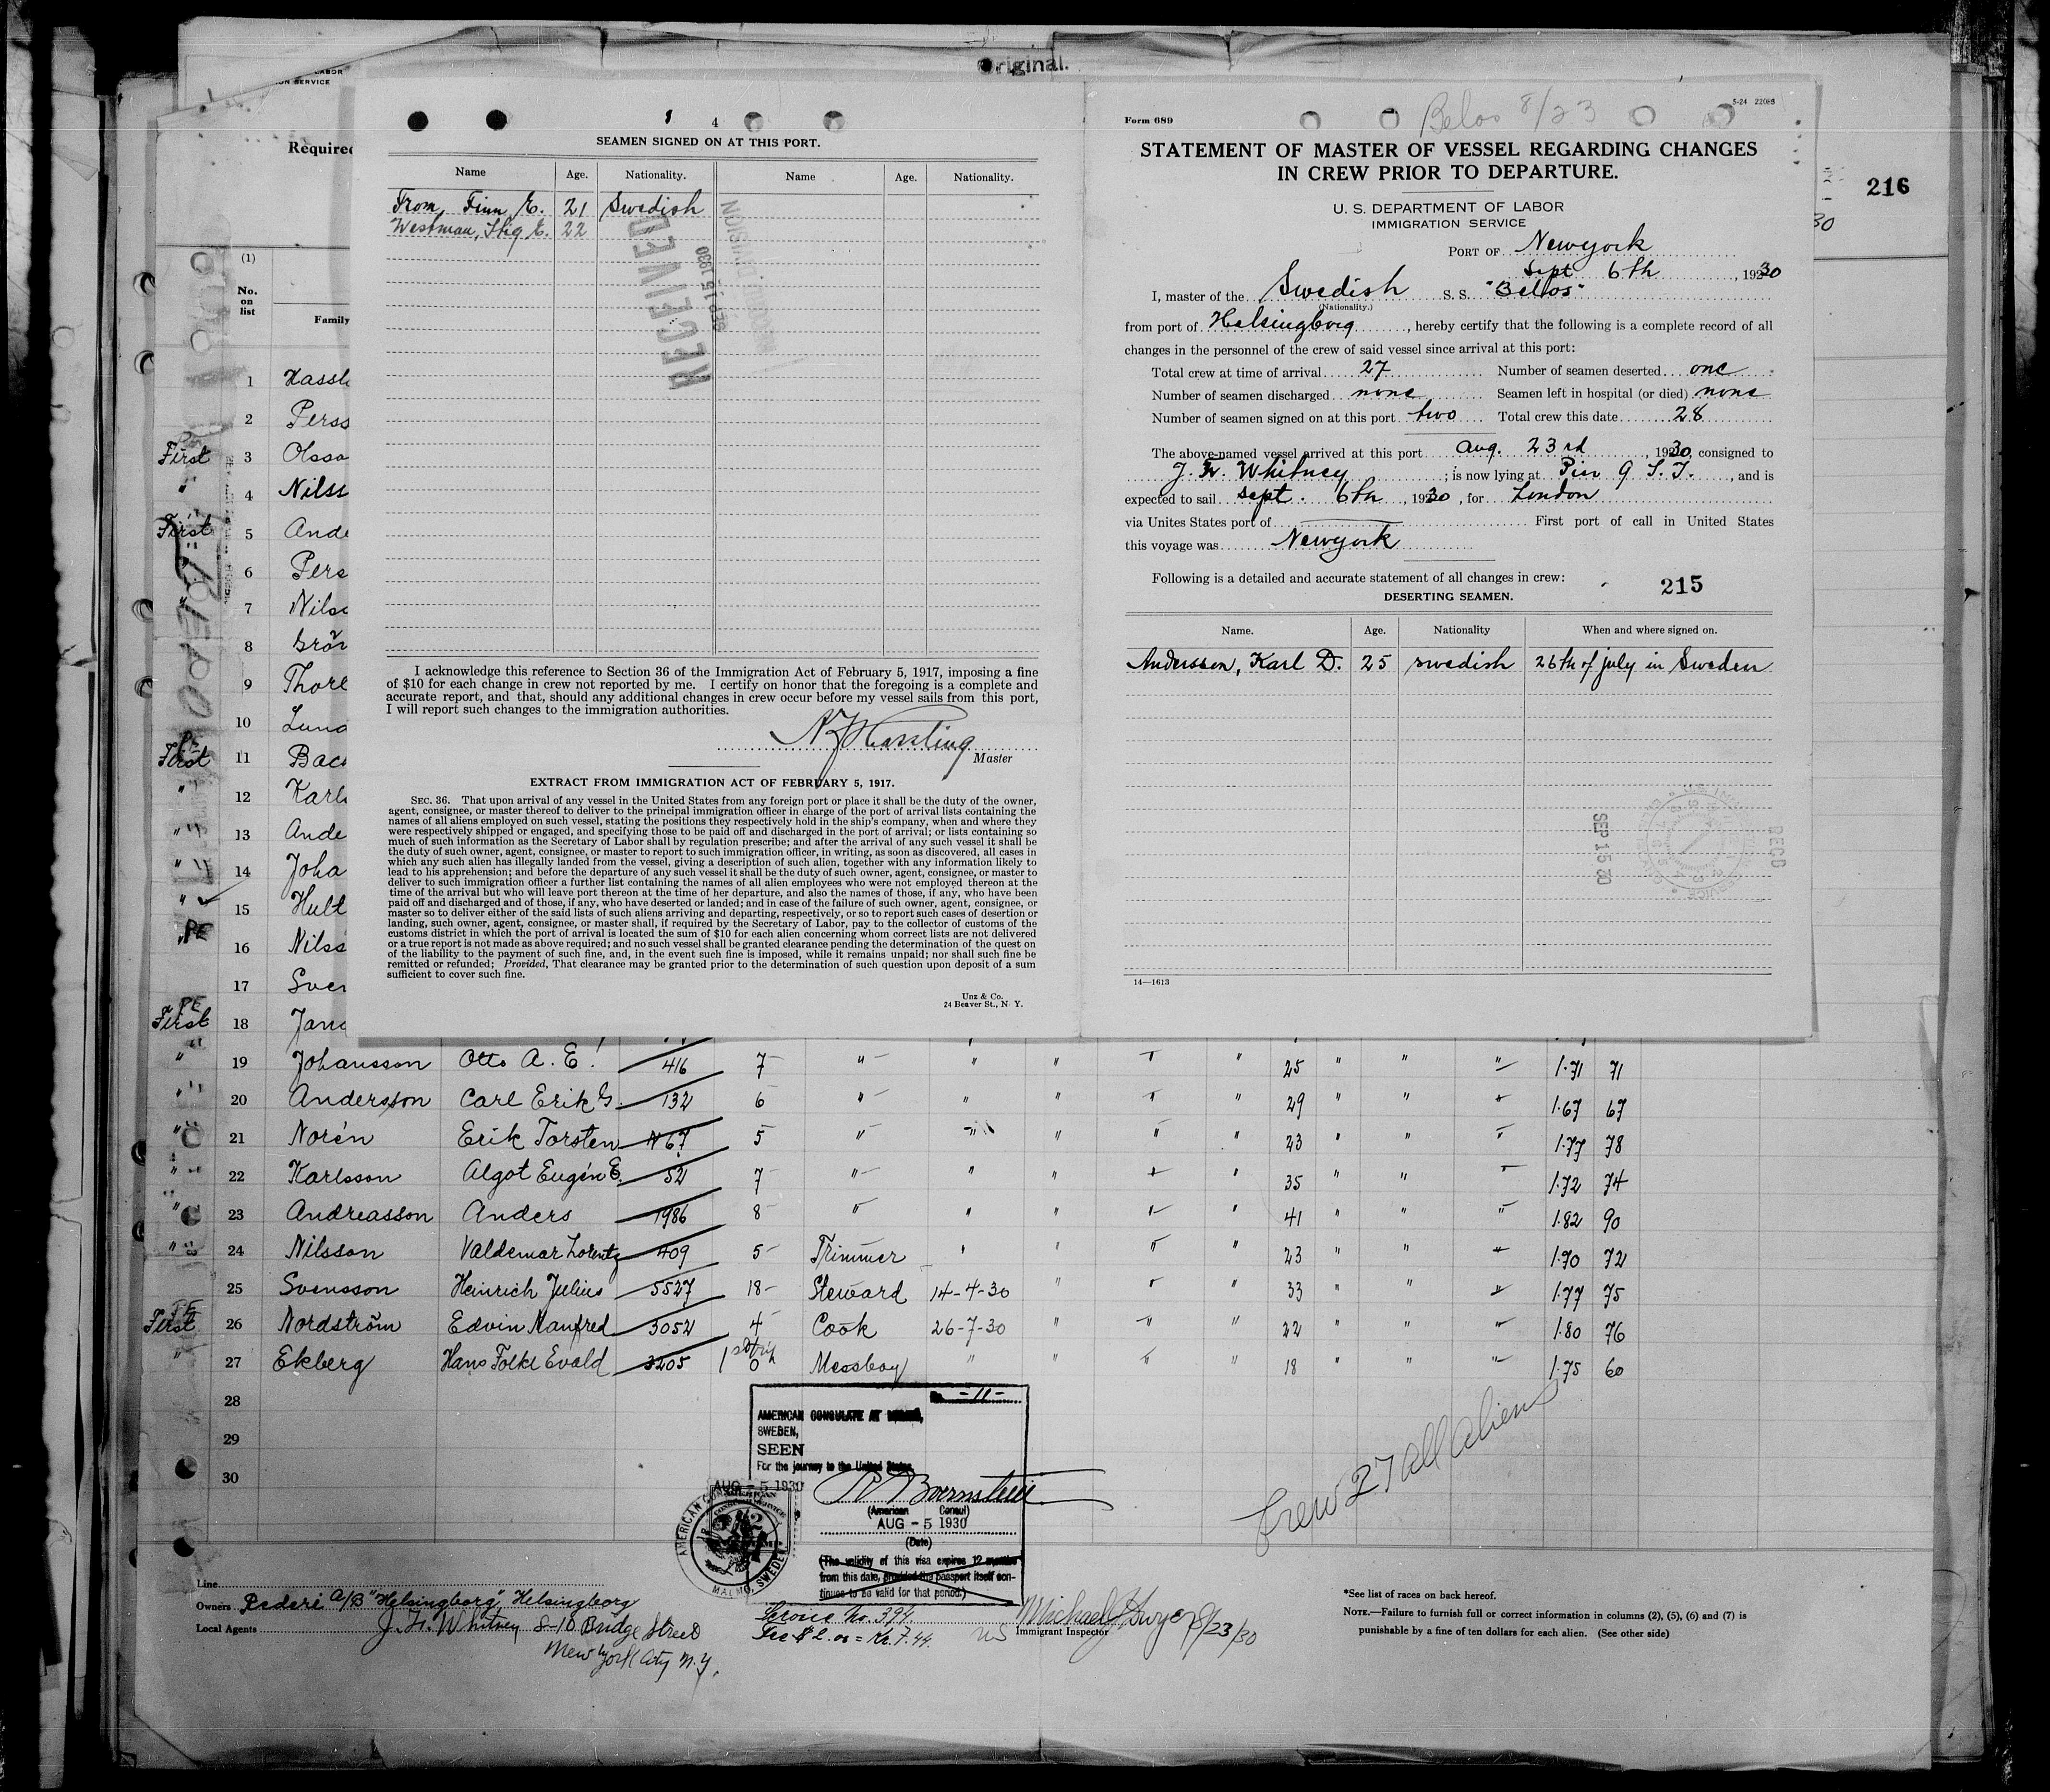 Original.
LABOR
ON SERVICE
Required
216
30
(1)
No. on list
Family
1 Hassl
2 Perss
First 3 Olsso
" 4 Nilss
First 5 Ande
6 Pers
" 7 Nils
8 Grön
9 Thore
10 Lund
First 11 Bac
" 12 Karl
" 13 Ande
" 14 Joha
" 15 Hult
PE 16 Nilss
17 Sven
PE
First 18 Jan
4
SEAMEN SIGNED ON AT THIS PORT.
Name Age. Nationality. Name Age. Nationality.
From, Finn E. 21 Swedish
Westman, Stig E. 22
RECEIVED
SEP 15 1930
RECORD DIVISION
I acknowledge this reference to Section 36 of the Immigration Act of February 5, 1917, imposing a fine
of $10 for each change in crew not reported by me. I certify on honor that the foregoing is a complete and
accurate report, and that, should any additional changes in crew occur before my vessel sails from this port,
I will report such changes to the immigration authorities.
Master
EXTRACT FROM IMMIGRATION ACT OF FEBRUARY 5, 1917.
SEC. 36. That upon arrival of any vessel in the United States from any foreign port or place it shall be the duty of the owner,
agent, consignee, or master thereof to deliver to the principal immigration officer in charge of the port of arrival lists containing the
names of all aliens employed on such vessel, stating the positions they respectively hold in the ship's company, when and where they
were respectively shipped or engaged, and specifying those to be paid off and discharged in the port of arrival; or lists containing so
much of such information as the Secretary of Labor shall by regulation prescribe; and after the arrival of any such vessel it shall be
the duty of such owner, agent, consignee, or master to report to such immigration officer, in writing, as soon as discovered, all cases in
which any such alien has illegally landed from the vessel, giving a description of such alien, together with any information likely to
lead to his apprehension; and before the departure of any such vessel it shall be the duty of such owner, agent, consignee, or master to
deliver to such immigration officer a further list containing the names of all alien employees who were not employed thereon at the
time of the arrival but who will leave port thereon at the time of her departure, and also the names of those, if any, who have been
paid off and discharged and of those, if any, who have deserted or landed; and in case of the failure of such owner, agent, consignee, or
master so to deliver either of the said lists of such aliens arriving and departing, respectively, or so to report such cases of desertion or
landing, such owner, agent, consignee, or master shall, if required by the Secretary of Labor, pay to the collector of customs of the
customs district in which the port of arrival is located the sum of $10 for each alien concerning whom correct lists are not delivered
or a true report is not made as above required; and no such vessel shall be granted clearance pending the determination of the quest on
of the liability to the payment of such fine, and, in the event such fine is imposed, while it remains unpaid; nor shall such fine be
remitted or refunded; Provided, That clearance may be granted prior to the determination of such question upon deposit of a sum
sufficient to cover such fine.
Unz & Co.
24 Beaver St., N. Y.
5-24 22088
Form 689
Belos 8/23
STATEMENT OF MASTER OF VESSEL REGARDING CHANGES
IN CREW PRIOR TO DEPARTURE.
U. S. DEPARTMENT OF LABOR
IMMIGRATION SERVICE
PORT OF Newyork
Sept 6th, 1930
I, master of the Swedish S. S. "Belos"
(Nationality.)
from port of Helsingborg, hereby certify that the following is a complete record of all
changes in the personnel of the crew of said vessel since arrival at this port:
Total crew at time of arrival 27 Number of seamen deserted one
Number of seamen discharged none Seamen left in hospital (or died) none
Number of seamen signed on at this port two Total crew this date 28
The above-named vessel arrived at this port aug. 23rd, 1930, consigned to
J. F. Whitney; is now lying at Pier 9 S. I., and is
expected to sail sept. 6th, 1930, for London
via Unites States port of First port of call in United States
this voyage was Newyork
Following is a detailed and accurate statement of all changes in crew:
215
DESERTING SEAMEN.
Name. Age. Nationality When and where signed on.
Andersson, Karl D. 25 swedish 26th of july in Sweden
SEP 15 30
RECD
14—1613
" 19 Johansson Otto A. E. 416 7 " " " " " 25 " " " 1.71 71
" 20 Andersson Carl Erik G. 132 6 " " " " " 29 " " " 1.67 67
" 21 Norén Erik Torsten N67 5 " " " " " 23 " " " 1.77 78
" 22 Karlsson Algot Eugén E. 52 7 " " " " " 35 " " " 1.72 74
" 23 Andreasson Anders 1986 8 " " " " " 41 " " " 1.82 90
" 24 Nilsson Valdemar Lorentz 409 5 Trimmer " " " " 23 " " " 1.70 72
25 Svensson Heinrich Julius 5527 18 Steward 14-4-30 " " " 33 " " " 1.77 75
PE
First 26 Nordström Edvin Manfred 3052 4 Cook 26-7-30 " " " 22 " " " 1.80 76
" 27 Ekberg Hans Folke Evald 3205 0 Messboy " " " " 18 " " " 1.75 60
28
29
30
-11-
AMERICAN CONSULATE AT
SWEDEN,
SEEN
For the journey to the United States
(American Consul)
AUG - 5 1930
(Date)
(The validity of this visa expires 12 months
from this date, provided the passport itself con-
tinues to be valid for that period.)
AUG - 5 1930
AMERICAN CONSULAR SERVICE
MALMO, SWEDEN
Crew 27 all aliens
Line
Owners Rederi A/B "Helsingborg", Helsingborg
Local Agents J. F. Whitney 8-10 Bridge Street
New York City N.Y.
Service No. 394
Fee $ 2.00 = Kr. 7.44.
US
Michael J Dwyer 8/23/30
Immigrant Inspector
*See list of races on back hereof.
NOTE.—Failure to furnish full or correct information in columns (2), (5), (6) and (7) is
punishable by a fine of ten dollars for each alien. (See other side)